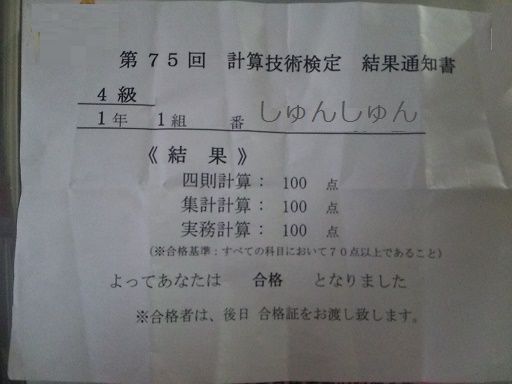 第75回 計算技術検定 結果通知書
4級
1年 1組 番 しゅんしゅん
《 結 果 》
四則計算： 100 点
集計計算： 100 点
実務計算： 100 点
(※合格基準：すべての科目において70点以上であること)
よってあなたは 合格 となりました
※合格者は、後日 合格証をお渡し致します。